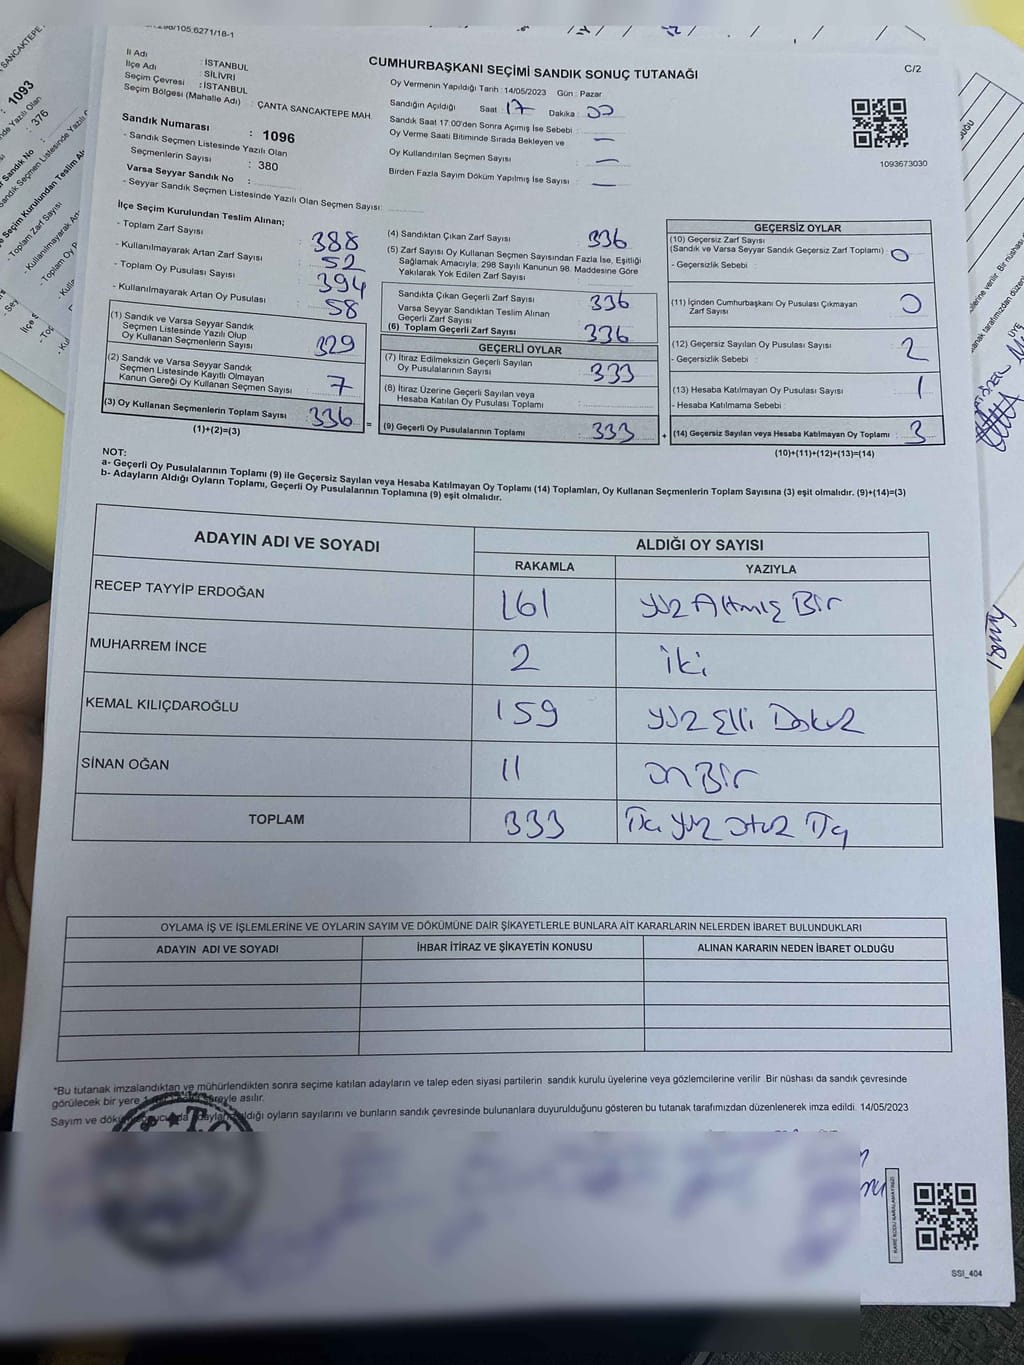 CUMHURBAŞKANI SEÇİMİ SANDIK SONUÇ TUTANAĞI
C/2
İl Adı : İSTANBUL
İlçe Adı : SİLİVRİ
Seçim Çevresi : İSTANBUL
Seçim Bölgesi (Mahalle Adı) : ÇANTA SANCAKTEPE MAH.
Sandık Numarası : 1096
- Sandık Seçmen Listesinde Yazılı Olan
Seçmenlerin Sayısı : 380
Varsa Seyyar Sandık No :
- Seyyar Sandık Seçmen Listesinde Yazılı Olan Seçmen Sayısı:
Oy Vermenin Yapıldığı Tarih : 14/05/2023 Gün : Pazar
Sandığın Açıldığı Saat : 17 Dakika : 00
Sandık Saat 17:00'den Sonra Açımış İse Sebebi :
Oy Verme Saati Bitiminde Sırada Bekleyen ve
Oy Kullandırılan Seçmen Sayısı : —
Birden Fazla Sayım Döküm Yapılmış İse Sayısı : —
1093673030
İlçe Seçim Kurulundan Teslim Alınan;
- Toplam Zarf Sayısı : 388
- Kullanılmayarak Artan Zarf Sayısı : 52
- Toplam Oy Pusulası Sayısı : 394
- Kullanılmayarak Artan Oy Pusulası : 58
(1) Sandık ve Varsa Seyyar Sandık
Seçmen Listesinde Yazılı Olup
Oy Kullanan Seçmenlerin Sayısı : 329
(2) Sandık ve Varsa Seyyar Sandık
Seçmen Listesinde Kayıtlı Olmayan
Kanun Gereği Oy Kullanan Seçmen Sayısı : 7
(3) Oy Kullanan Seçmenlerin Toplam Sayısı : 336
(1)+(2)=(3)
(4) Sandıktan Çıkan Zarf Sayısı : 336
(5) Zarf Sayısı Oy Kullanan Seçmen Sayısından Fazla İse, Eşitliği
Sağlamak Amacıyla, 298 Sayılı Kanunun 98. Maddesine Göre
Yakılarak Yok Edilen Zarf Sayısı :
Sandıkta Çıkan Geçerli Zarf Sayısı : 336
Varsa Seyyar Sandıktan Teslim Alınan
Geçerli Zarf Sayısı :
(6) Toplam Geçerli Zarf Sayısı : 336
GEÇERLİ OYLAR
(7) İtiraz Edilmeksizin Geçerli Sayılan
Oy Pusulalarının Sayısı : 333
(8) İtiraz Üzerine Geçerli Sayılan veya
Hesaba Katılan Oy Pusulası Toplamı :
= (9) Geçerli Oy Pusulalarının Toplamı : 333
GEÇERSİZ OYLAR
(10) Geçersiz Zarf Sayısı
(Sandık ve Varsa Seyyar Sandık Geçersiz Zarf Toplamı) : 0
- Geçersizlik Sebebi :
(11) İçinden Cumhurbaşkanı Oy Pusulası Çıkmayan
Zarf Sayısı : 0
(12) Geçersiz Sayılan Oy Pusulası Sayısı : 2
- Geçersizlik Sebebi :
(13) Hesaba Katılmayan Oy Pusulası Sayısı : 1
- Hesaba Katılmama Sebebi :
+ (14) Geçersiz Sayılan veya Hesaba Katılmayan Oy Toplamı : 3
(10)+(11)+(12)+(13)=(14)
NOT:
a- Geçerli Oy Pusulalarının Toplamı (9) ile Geçersiz Sayılan veya Hesaba Katılmayan Oy Toplamı (14) Toplamları, Oy Kullanan Seçmenlerin Toplam Sayısına (3) eşit olmalıdır. (9)+(14)=(3)
b- Adayların Aldığı Oyların Toplamı, Geçerli Oy Pusulalarının Toplamına (9) eşit olmalıdır.
ADAYIN ADI VE SOYADI ALDIĞI OY SAYISI
RAKAMLA YAZIYLA
RECEP TAYYİP ERDOĞAN 161 Yüz Altmış Bir
MUHARREM İNCE 2 iki
KEMAL KILIÇDAROĞLU 159 Yüz Elli Dokuz
SİNAN OĞAN 11 on Bir
TOPLAM 333 Üç Yüz otuz Üç
OYLAMA İŞ VE İŞLEMLERİNE VE OYLARIN SAYIM VE DÖKÜMÜNE DAİR ŞİKAYETLERLE BUNLARA AİT KARARLARIN NELERDEN İBARET BULUNDUKLARI
ADAYIN ADI VE SOYADI İHBAR İTİRAZ VE ŞİKAYETİN KONUSU ALINAN KARARIN NEDEN İBARET OLDUĞU
*Bu tutanak imzalandıktan ve mühürlendikten sonra seçime katılan adayların ve talep eden siyasi partilerin sandık kurulu üyelerine veya gözlemcilerine verilir .Bir nüshası da sandık çevresinde
görülecek bir yere süreyle asılır.
Sayım ve aldığı oyların sayılarını ve bunların sandık çevresinde bulunanlara duyurulduğunu gösteren bu tutanak tarafımızdan düzenlenerek imza edildi. 14/05/2023
T.C.
KARE KODU KARALAMAYINIZ!
SSI_404
SANCAKTEPE
1093
376